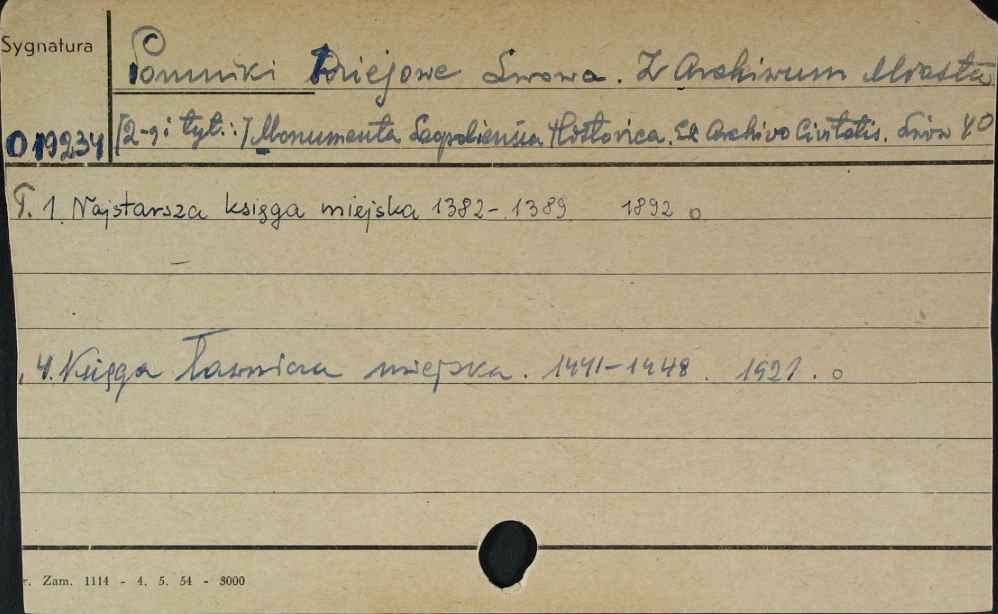 Sygnatura
Pomniki Dziejowe Lwowa. Z Archiwum Miasta
019234
[2-gi tyt.:] Monumenta Leopoliensia Historica. Ex Archivo Civitatis. Lwów 4°
T. 1. Najstarsza księga miejska 1382-1389 1892 o
4. Księga Ławnicza miejska. 1441-1448. 1921. o
r. Zam. 1114 - 4. 5. 54 - 3000